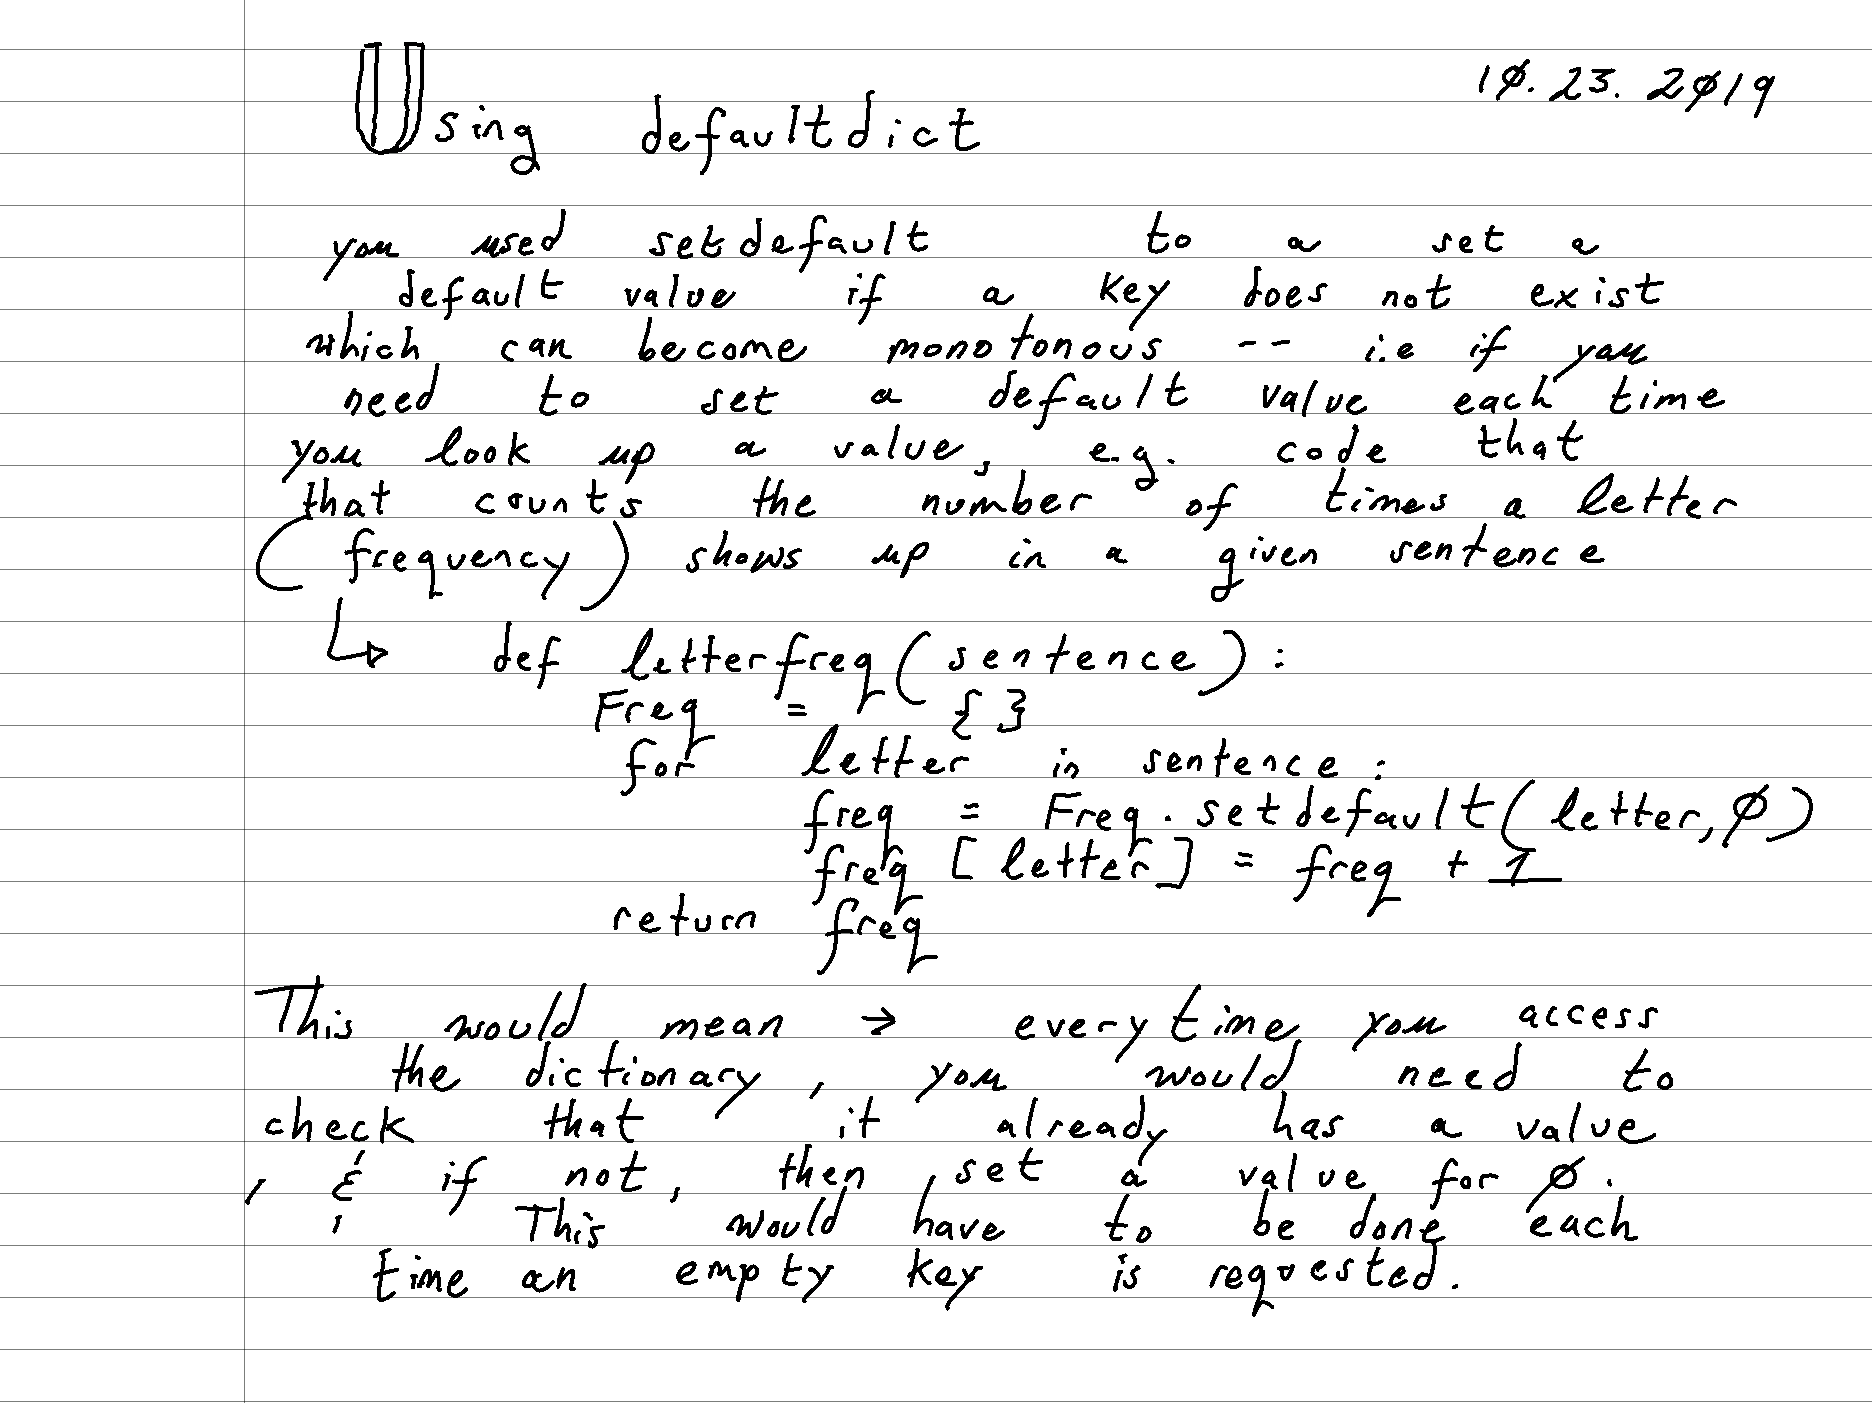 10.23.2019
Using defaultdict
you used setdefault to a set a
default value if a key does not exist
which can become monotonous -- i.e if you
need to set a default value each time
you look up a value, e.g. code that
that counts the number of times a letter
(frequency) shows up in a given sentence
↳ def letterfreq(sentence):
Freq = { }
for letter in sentence:
freq = Freq.setdefault(letter, 0)
freq [letter] = freq + 1
return freq
This would mean → everytime you access
the dictionary, you would need to
check that it already has a value
, & if not, then, set a value for 0.
This would have to be done each
time an empty key is requested.